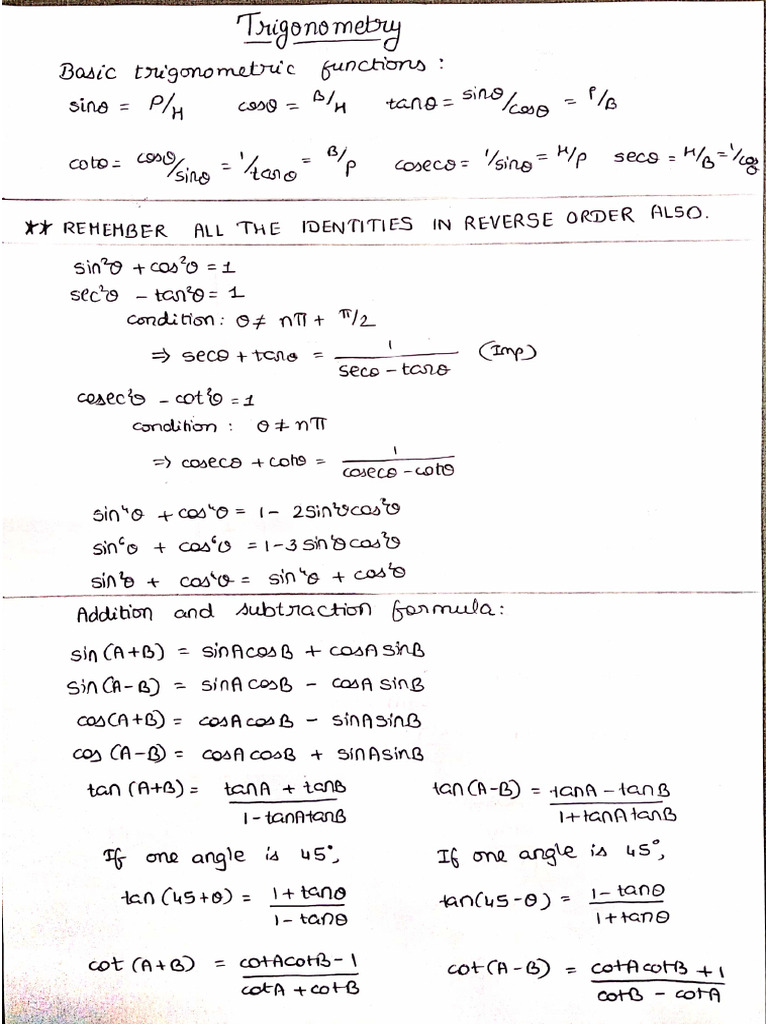 Trigonometry
Basic trigonometric functions :
sinθ = P/H cosθ = B/H tanθ = sinθ/cosθ = P/B
cotθ = cosθ/sinθ = 1/tanθ = B/P cosecθ = 1/sinθ = H/P secθ = H/B = 1/cosθ
** REMEMBER ALL THE IDENTITIES IN REVERSE ORDER ALSO.
sin²θ + cos²θ = 1
sec²θ - tan²θ = 1
condition: θ ≠ nπ + π/2
⇒ secθ + tanθ = 1/(secθ - tanθ) (Imp)
cosec²θ - cot²θ = 1
condition : θ ≠ nπ
⇒ cosecθ + cotθ = 1/(cosecθ - cotθ)
sin⁴θ + cos⁴θ = 1 - 2sin²θcos²θ
sin⁶θ + cos⁶θ = 1 - 3sin²θcos²θ
sin²θ + cos⁴θ = sin⁴θ + cos²θ
Addition and subtraction formula:
sin(A+B) = sinAcosB + cosAsinB
sin(A-B) = sinAcosB - cosAsinB
cos(A+B) = cosAcosB - sinAsinB
cos (A-B) = cosAcosB + sinAsinB
tan (A+B) = (tanA + tanB)/(1 - tanAtanB) tan (A-B) = (tanA - tanB)/(1 + tanAtanB)
If one angle is 45°, If one angle is 45°,
tan (45+θ) = (1 + tanθ)/(1 - tanθ) tan(45-θ) = (1 - tanθ)/(1 + tanθ)
cot (A+B) = (cotAcotB - 1)/(cotA + cotB) cot (A-B) = (cotAcotB + 1)/(cotB - cotA)